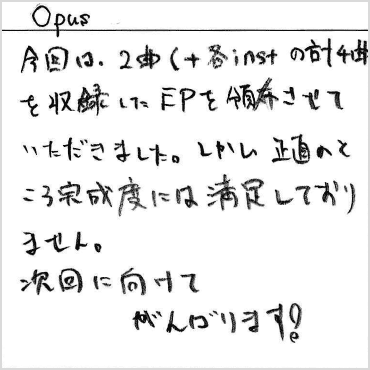 Opus
今回は、2曲(+各instの計4曲
を収録したEPを頒布させて
いただきました。しかし正直のと
ころ完成度には満足しており
ません。
次回に向けて
がんばります!